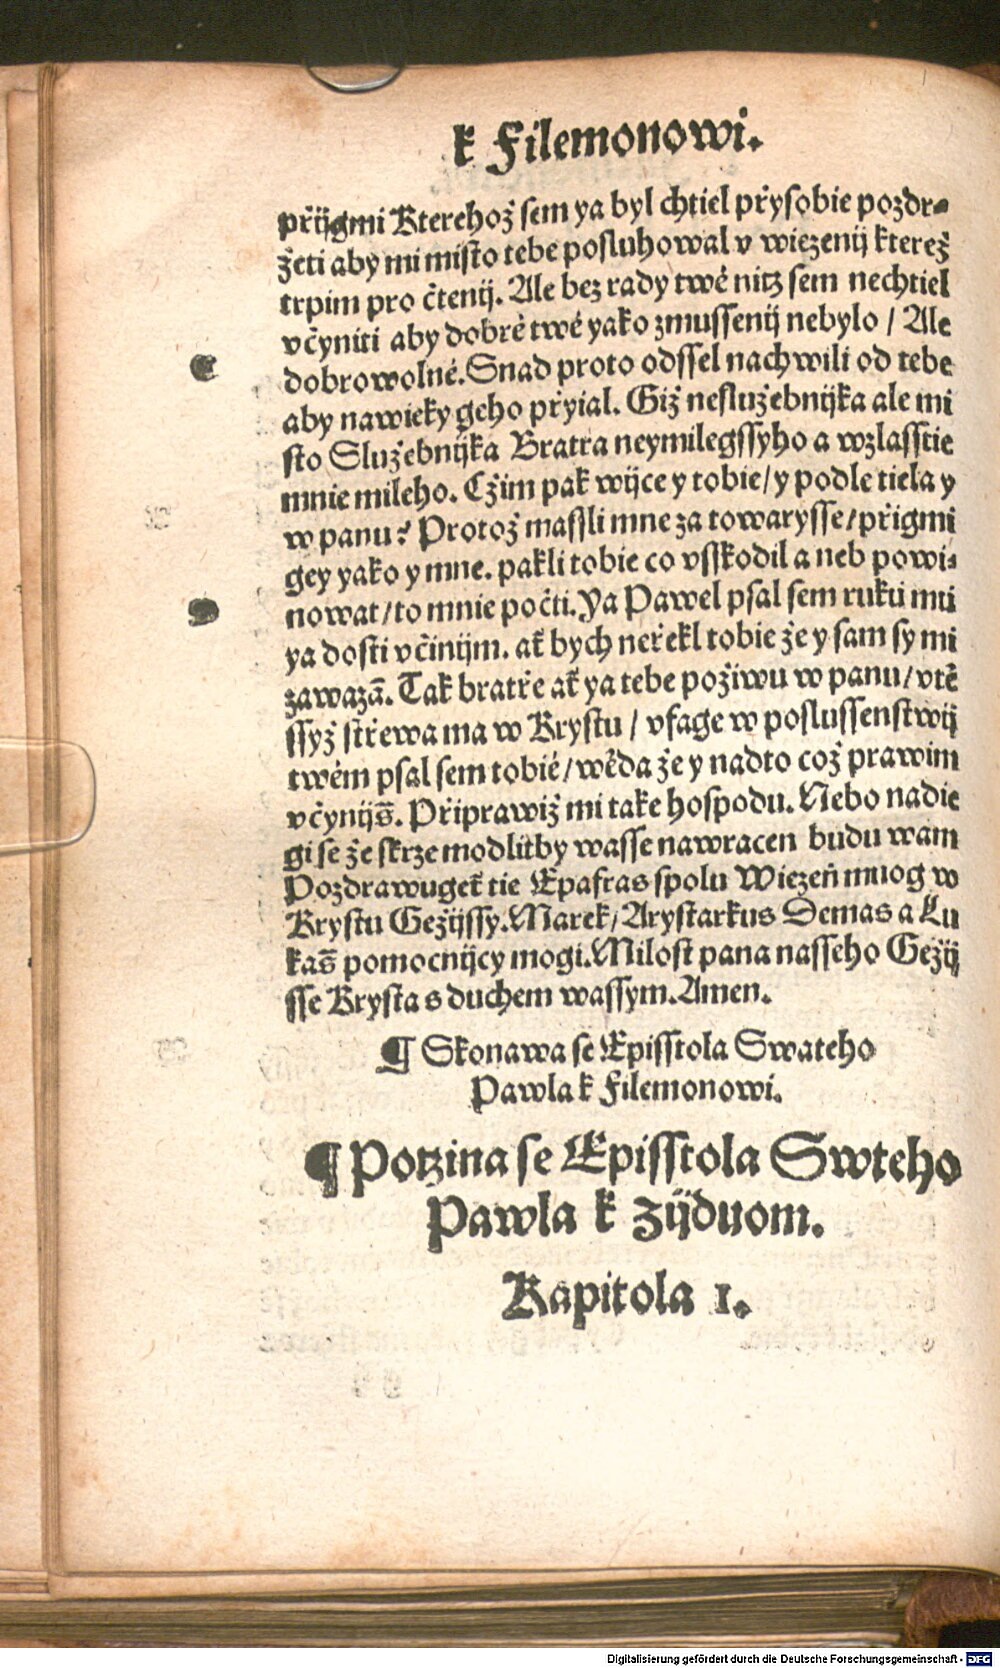 k Filemonowi.
přijgmi Kterehož sem ya byl chtiel přysobie pozdr-
žeti aby mi misto tebe posluhowal v wiezenij kterež
trpim pro čtenij. Ale bez rady twé nitz sem nechtiel
včyniti aby dobré twé yako zmussenij nebylo / Ale
dobrowolné. Snad proto odssel nachwili od tebe
C
aby nawieky geho přyial. Giž neslužebnijka ale mi
sto Služebnijka Bratra neymilegssyho a wzlasstie
mnie mileho. Cžim pak wijce y tobie / y podle tiela y
w panu? Protož massli mne za towarysse / přigmi
gey yako y mne. pakli tobie co vsskodil a neb powi-
nowat / to mnie počti. Ya Pawel psal sem ruku mu
D
ya dosti včinijm. ať bych neřekl tobie že y sam sy mi
zawazā. Tak bratře ať ya tebe požiwu w panu / vtě
ssyž střewa ma w Krystu / vfage w poslussenstwij
twém psal sem tobié / wěda že y nadto což prawim
včynijs̄. Připrawiž mi take hospodu. Nebo nadie
gi se že skrze modlitby wasse nawracen budu wam
Pozdrawugeť tie Epafras spolu Wiezeň muog w
Krystu Gežijssy. Marek / Arystarkus Demas a Lu
kas̄ pomocnijcy mogi. Milost pana nasseho Gežij
sse Krysta s duchem wassym. Amen.
¶ Skonawa se Episstola Swateho
Pawla k Filemonowi.
¶ Potzina se Episstola Swteho
Pawla k Zijduom.
Kapitola 1.
Digitalisierung gefördert durch die Deutsche Forschungsgemeinschaft - DFG